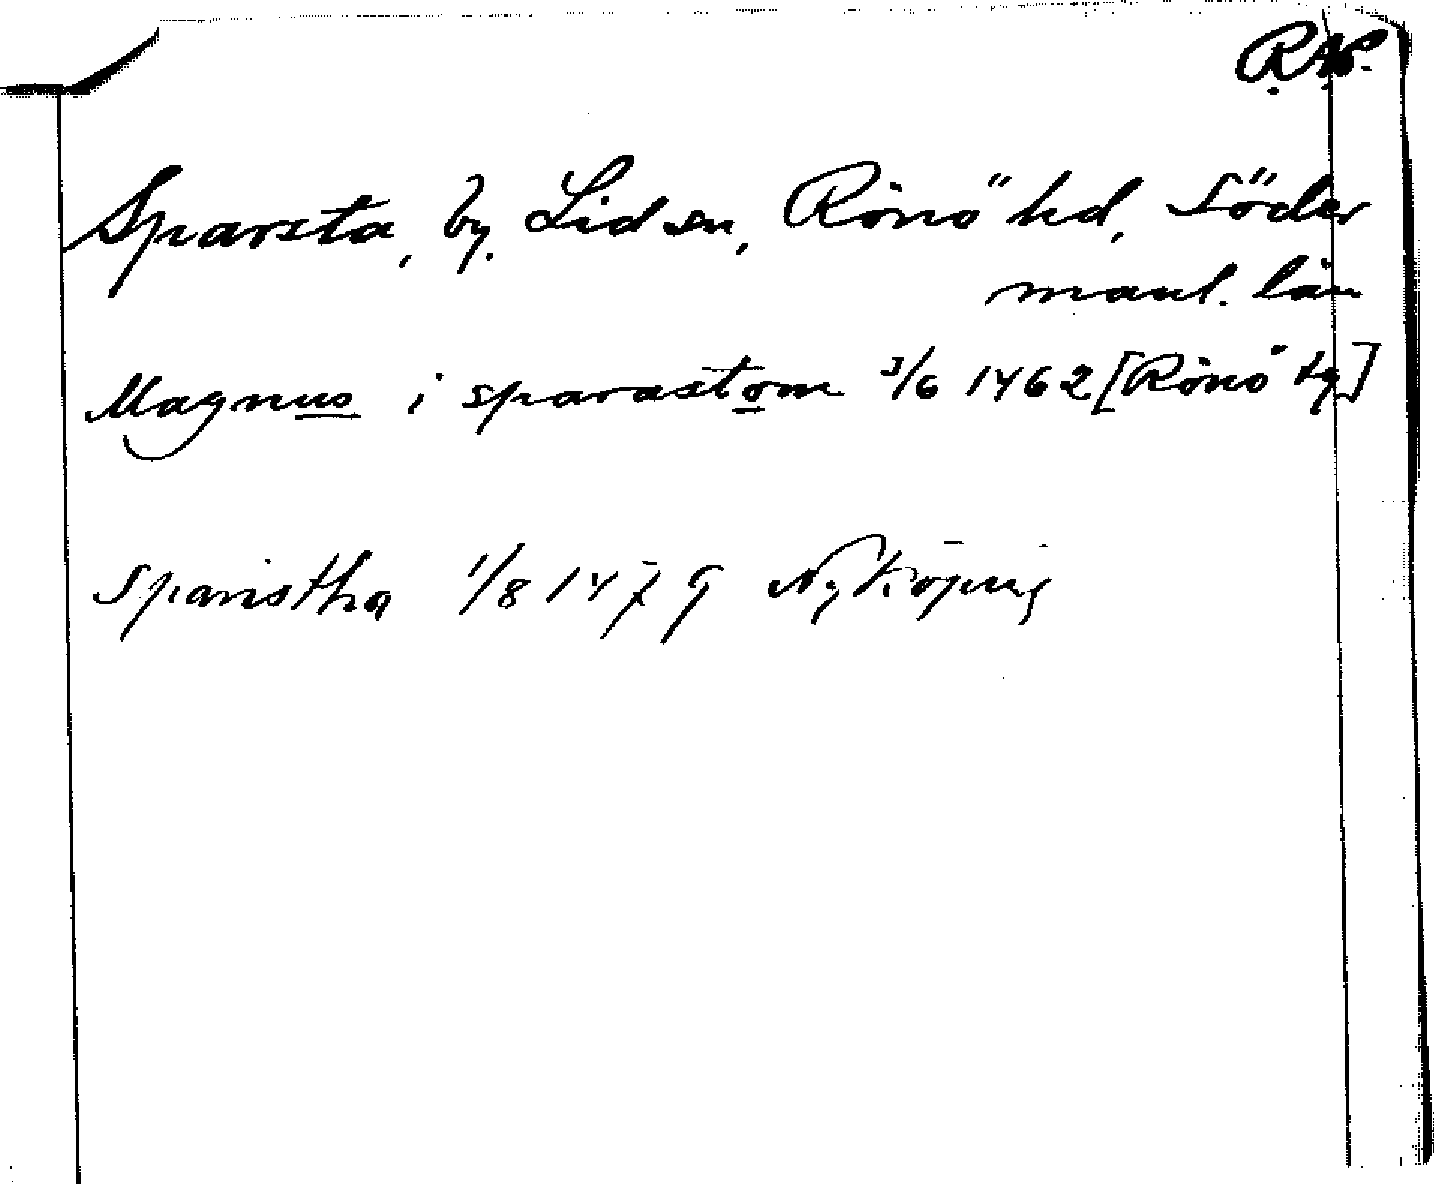 R.A.P.
Sparsta, by. Lid sn, Rönö hd, Söder
manl. län
Magnus i sparastom 3/6 1462 [Rönö tg]
Sparistha 1/8 1479 Nyköping